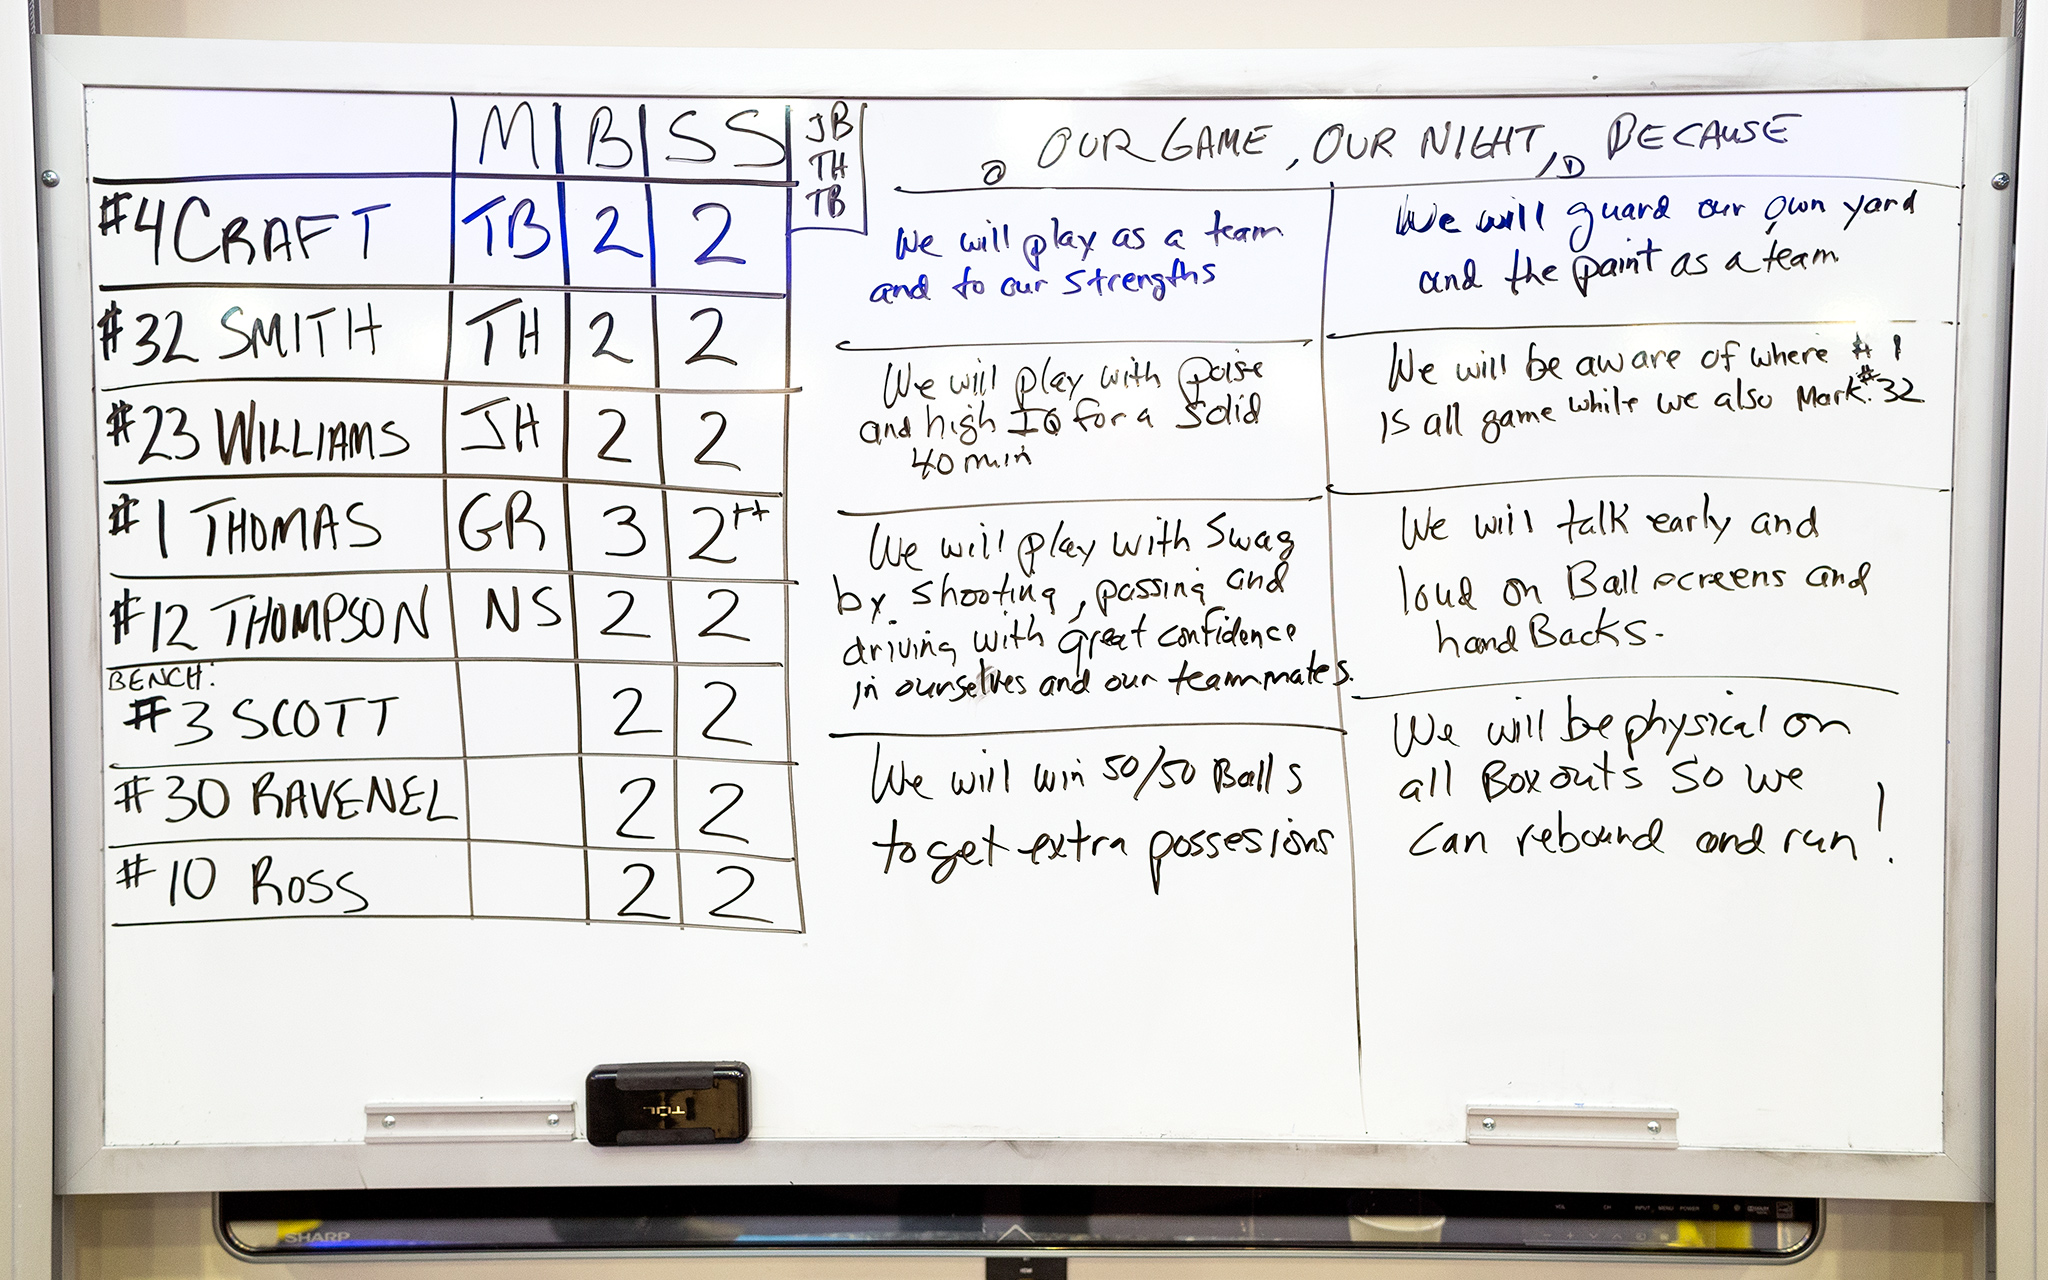 M B SS
JB
TH
TB
#4 CRAFT TB 2 2
#32 SMITH TH 2 2
#23 WILLIAMS JH 2 2
#1 THOMAS GR 3 2++
#12 THOMPSON NS 2 2
BENCH:
#3 SCOTT 2 2
#30 RAVENEL 2 2
#10 ROSS 2 2
OUR GAME, OUR NIGHT, BECAUSE
O
D
We will play as a team
and to our strengths
We will play with poise
and high IQ for a solid
40 min
We will play with swag
by shooting, passing and
driving with great confidence
in ourselves and our teammates.
We will win 50/50 Balls
to get extra possesions
We will guard our own yard
and the paint as a team
We will be aware of where #1
is all game while we also Mark #32
We will talk early and
loud on Ball screens and
hand Backs.
We will be physical on
all Box outs so we
can rebound and run!
TUL
SHARP
VOL CH INPUT MENU POWER